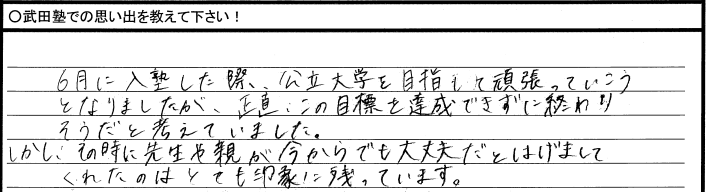 ○武田塾での思い出を教えて下さい！
6月に入塾した際、公立大学を目指して頑張っていこう
となりましたが、正直、この目標を達成できずに終わり
そうだと考えていました。
しかし、その時に先生や親が今からでも大丈夫だとはげまして
くれたのはとても印象に残っています。